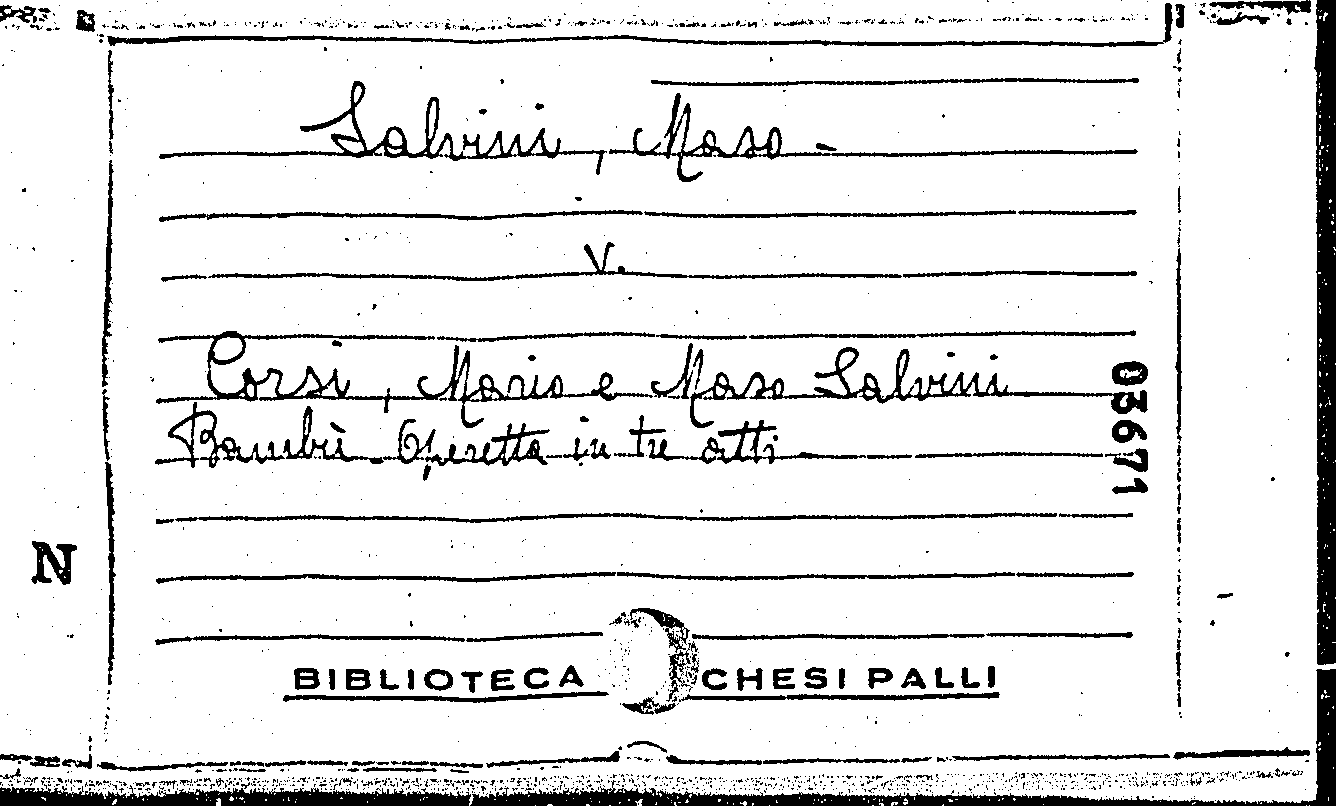 Salvini, Maso -
V.
Corsi, Mario e Maso Salvini
Bambù - Operetta in tre atti -
03671
N
BIBLIOTECA CHESI PALLI